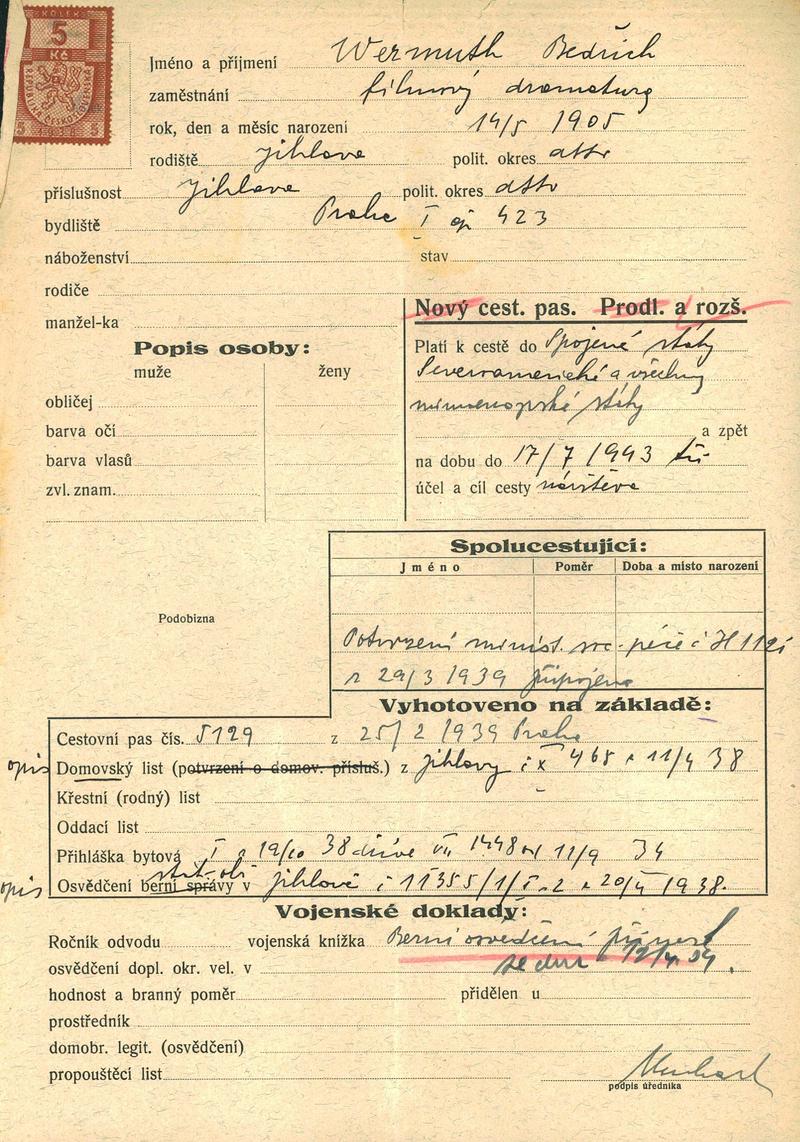 KOLEK
5
Kč
5 5
Jméno a příjmení Wermuth Bedřich
zaměstnání filmový dramaturg
rok, den a měsíc narození 14/5 1905
rodiště Jihlava polit. okres dtto
příslušnost Jihlava polit. okres dtto
bydliště Praha I čp 423
náboženství stav
rodiče
manžel-ka
Nový cest. pas. Prodl. a rozš.
Popis osoby:
muže ženy
obličej
barva očí
barva vlasů
zvl. znam.
Platí k cestě do Spojené státy
Severoamerické a všechny
mimoevropské státy
a zpět
na dobu do 17/7 1943
účel a cíl cesty návštěva
Spolucestující:
Jméno Poměr Doba a místo narození
Podobizna
Potvrzení minist. soc. péče č H
z 29/3 1939 připojeno
Vyhotoveno na základě:
Cestovní pas čís. 5129 z 25/2 1939 Praha
opis Domovský list (potvrzení o domov. přísluš.) z Jihlavy č X 468 11/4 38
Křestní (rodný) list
Oddací list
Přihláška bytová I z 19/10 38 dříve VII 1448 od 11/9 34
stát. obč.
opis Osvědčení berní správy v Jihlavě č 11355/1/I-2 1938.
Vojenské doklady:
Ročník odvodu vojenská knížka Berní osvědčení
osvědčení dopl. okr. vel. v ze dne
hodnost a branný poměr přidělen u
prostředník
domobr. legit. (osvědčení)
propouštěcí list
podpis úředníka